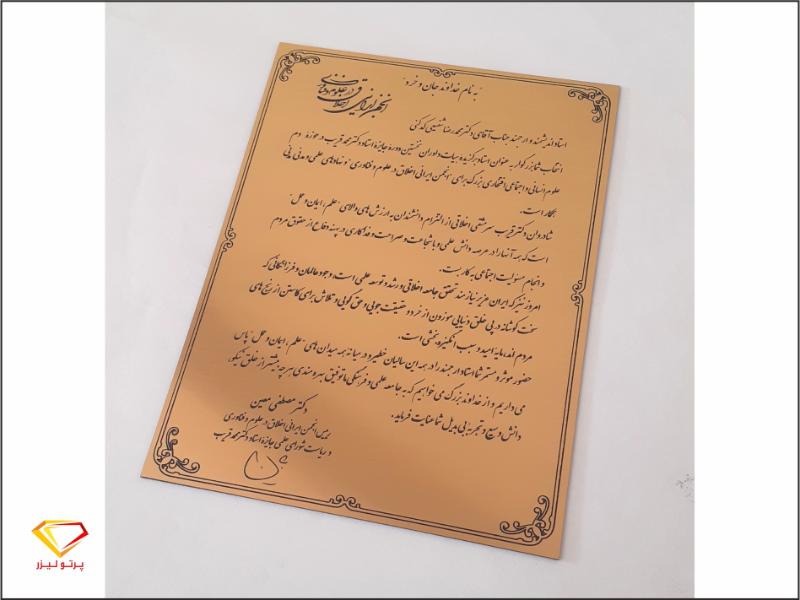 "به نام خداوند جان و خرد"
انجمن ایرانی اخلاق در علوم و فناوری
استاد اندیشمند و ارجمند جناب آقای دکتر محمدرضا شفیعی کدکنی
انتخاب شما بزرگوار به عنوان استاد برگزیده هیات داوران نخستین دوره جایزه استاد دکتر محمد قریب در حوزه
علوم انسانی و اجتماعی افتخاری بزرگ برای "انجمن ایرانی اخلاق در علوم و فناوری" و نهادهای علمی و مدنی
همکار است.
شادروان دکتر قریب سرمشقی اخلاقی از التزام دانشمندان به ارزش های والای "علم، ایمان و عمل"
است که همه آنها را در عرصه دانش علمی و با شجاعت و صراحت و فداکاری در پهنه دفاع از حقوق مردم
و انجام مسئولیت اجتماعی به کار بست.
امروز نیز که ایران عزیز نیازمند تحقق جامعه اخلاقی و رشد و توسعه علمی است، وجود عالمان و فرزانگانی که
سخت کوشانه در پی خلق دنیایی موزون از خرد و حقیقت جویی و حق گویی و تلاش برای کاستن از رنج های
مردم اند، مایه امید و سبب انگیزه بخشی است.
حضور موثر و مستمر شما استاد ارجمند را در همه این سالیان خطیر و در میانه همه میدان های "علم، ایمان و عمل" پاس
می داریم و از خداوند بزرگ می خواهیم که به جامعه علمی و فرهنگی ما توفیق بهره مندی هر چه بیشتر از خلق نیکو،
دانش وسیع و تجربه بی بدیل شما عنایت فرماید.
دکتر مصطفی معین
رییس انجمن ایرانی اخلاق در علوم و فناوری
و ریاست شورای علمی جایزه استاد دکتر محمد قریب
پرتو لیزر